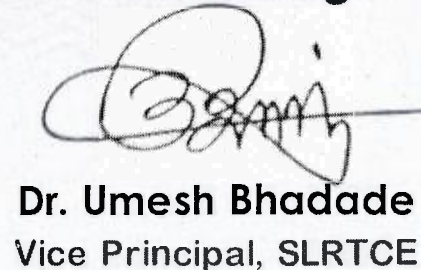 Dr. Umesh Bhadade
Vice Principal, SLRTCE